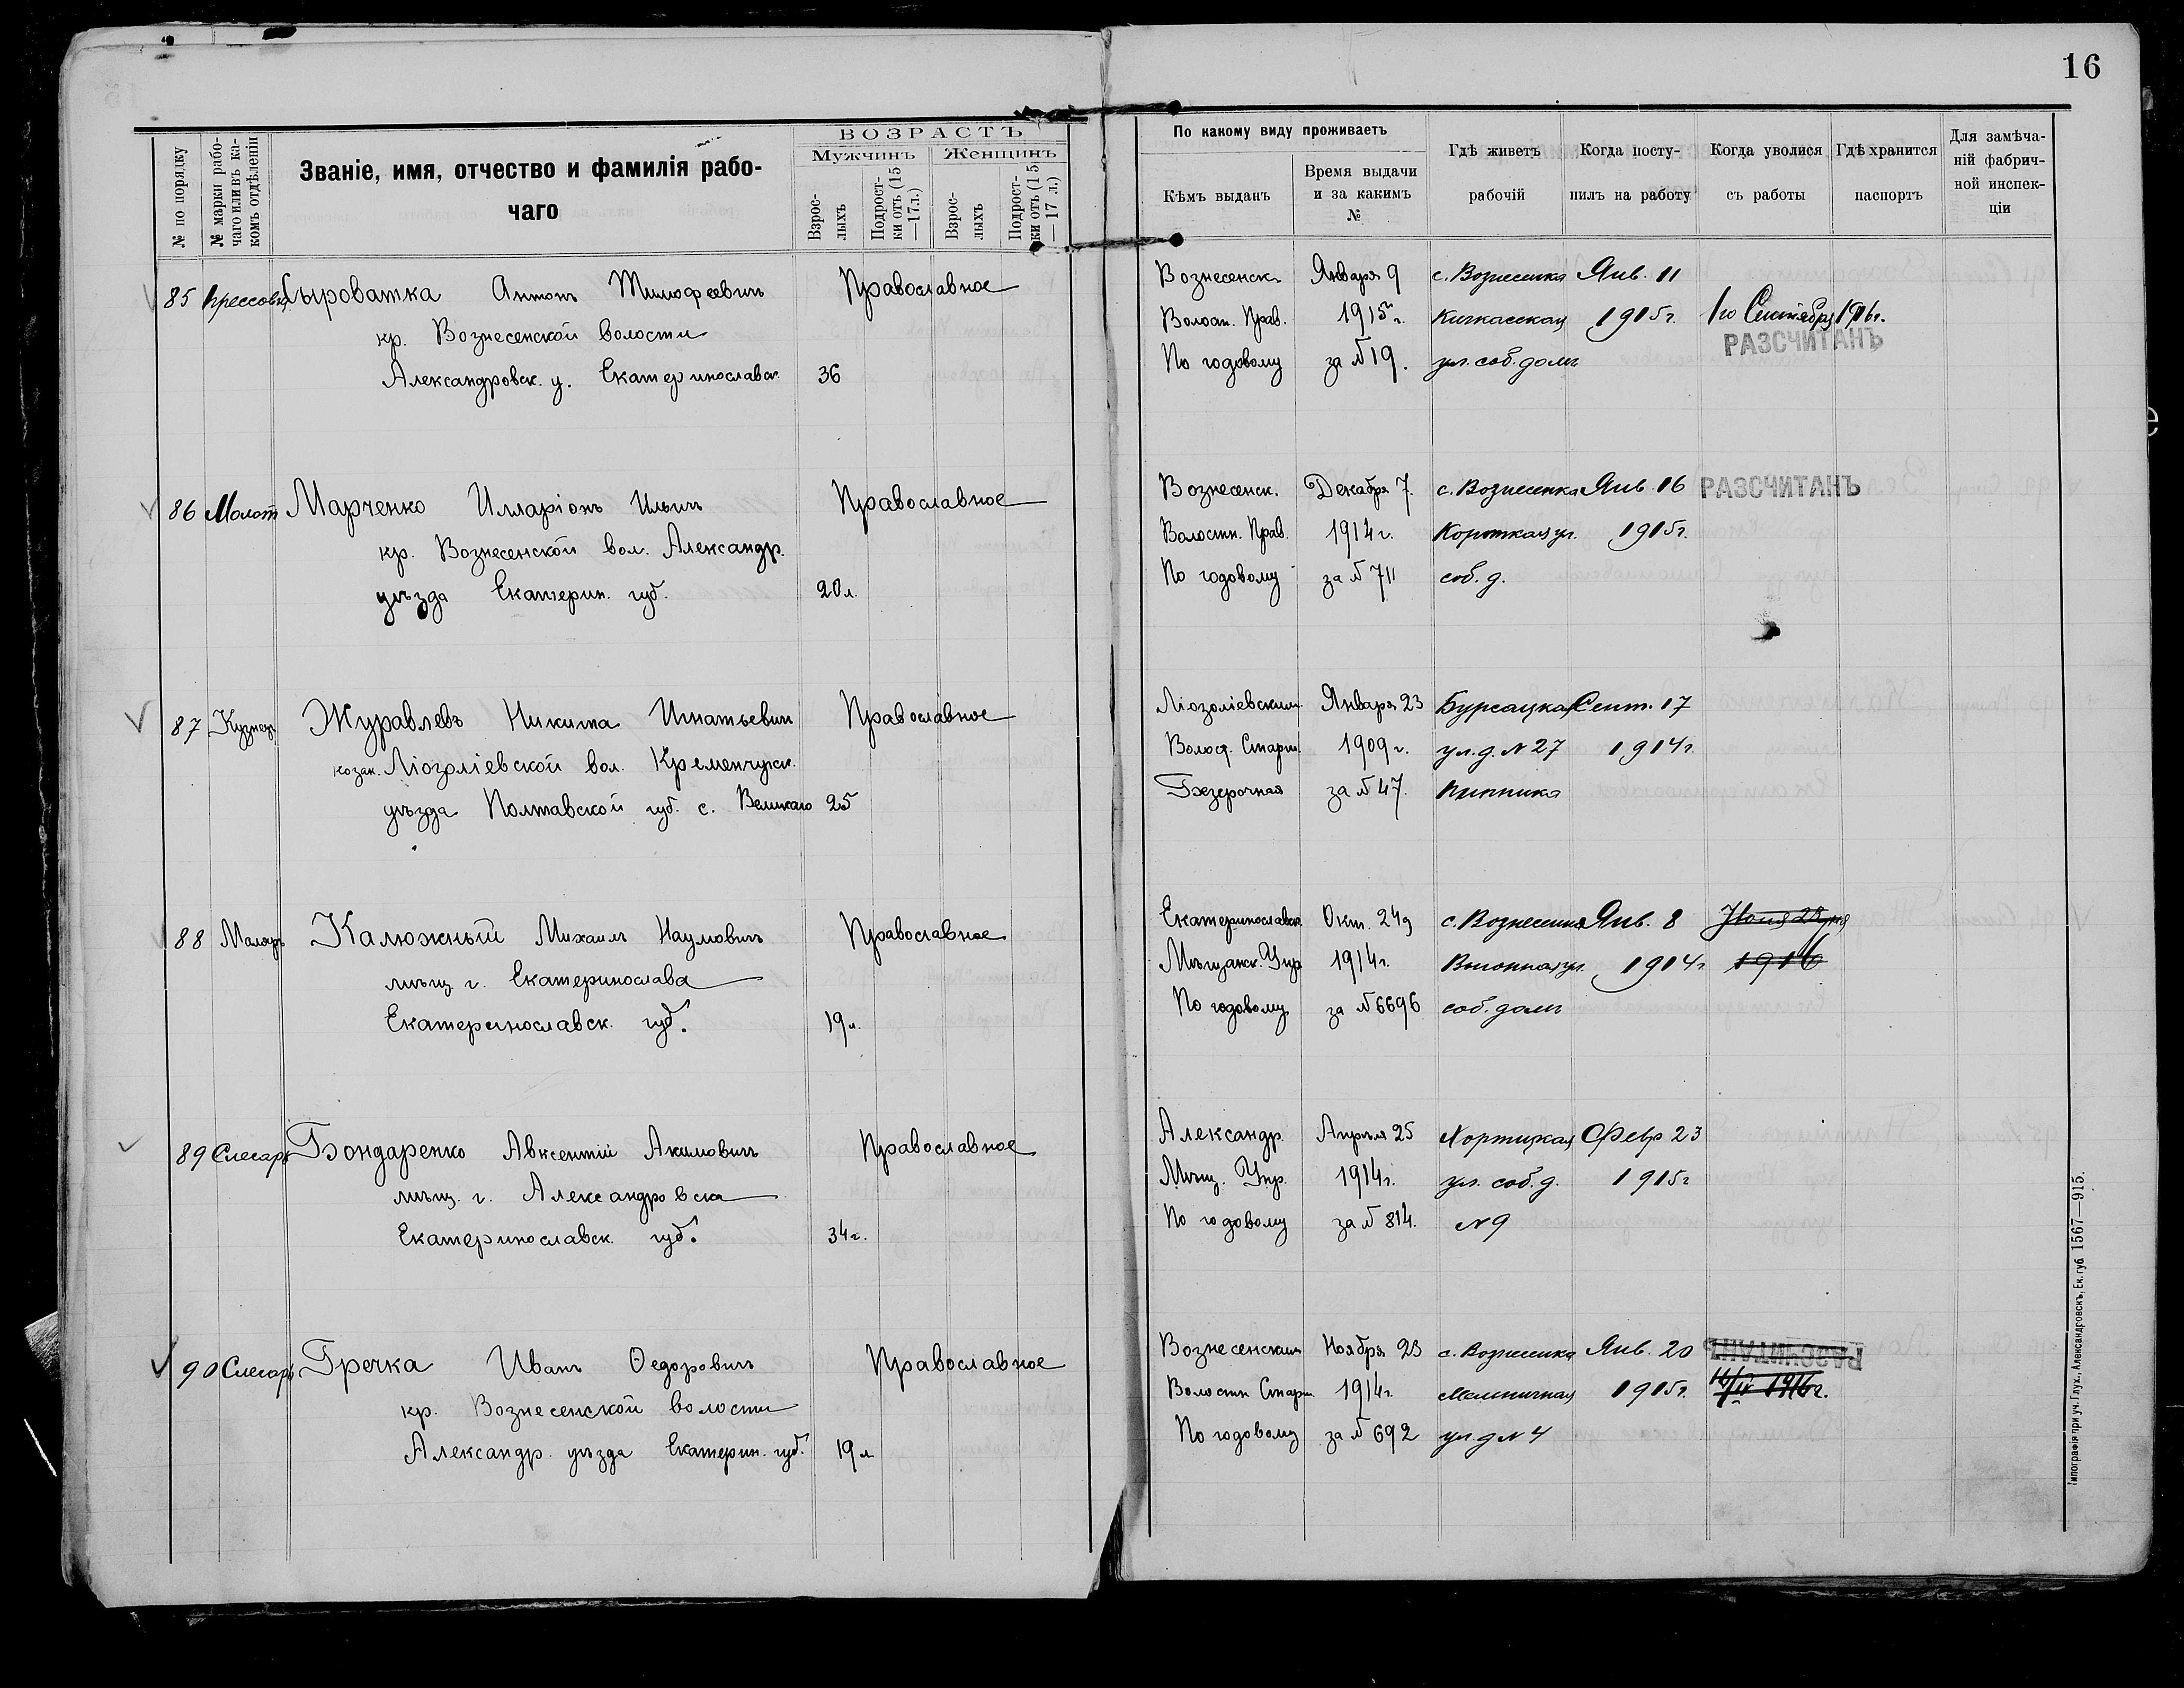 16
№ по порядку
№ марки рабо-
чаго или въ ка-
комъ отдѣленіи
Званіе, имя, отчество и фамилія рабо-
чаго
ВОЗРАСТЪ
Мужчинъ
Женщинъ
Взрос-
лыхъ
Подрост-
ки отъ (15
—17 л.)
Взрос-
лыхъ
Подрост-
ки отъ (15
— 17 л.)
По какому виду проживаетъ
Кѣмъ выданъ
Время выдачи
и за какимъ
№
Гдѣ живетъ
рабочій
Когда посту-
пилъ на работу
Когда уволися
съ работы
Гдѣ хранится
паспортъ
Для замѣча-
ній фабрич-
ной инспек-
ціи
85 Сыроватка Антонъ Тимофеевичъ Православное
кр. Вознесенской волости
Александровск. у. Екатеринославск. 36
Вознесенск. Января 9 с. Вознесенка Янв. 11
Волост. Прав. 1915 г. Кичкасская 1915 г. 1го Сентября 1916 г.
РАЗСЧИТАНЪ
По годовому за № 19. ул. соб. домъ
86 Молот Марченко Илларіонъ Ильичъ Православное
кр. Вознесенской вол. Александр.
уѣзда Екатерин. губ. 20 л.
Вознесенск. Декабря 7. с. Вознесенка Янв. 16 РАЗСЧИТАНЪ
Волостн. Прав. 1914 г. Короткая ул. 1915 г.
По годовому за № 711 соб. д.
87 Кузнец Журавлевъ Никита Игнатьевич Православное
козак. вол. Кременчугск.
уѣзда Полтавской губ. с. Великаго 25
Января 23 Бурсацкая Сент. 17
Волост. Старш. 1909 г. ул. д. № 27 1914 г.
Безсрочная за № 47.
88 Маляръ Калюжный Михаилъ Наумовичъ Православное
мѣщ. г. Екатеринослава
Екатеринославск. губ. 19 л.
Екатеринославск. Окт. 24 с. Вознесенка Янв. 8 Июня 28 дня
Мѣщанск. Упр. 1914 г. 1914 г 1916
По годовому за № 6696 соб. домъ
89 Слесарь Бондаренко Авксентій Акимовичъ Православное
мѣщ. г. Александровска
Екатеринославск. губ. 34 г.
Александр. Апрѣля 25 Хортицкая Февр 23
Мѣщ. Упр. 1914 г. ул. соб. д. 1915 г
По годовому за № 814. № 9
90 Слесарь Гречка Иванъ Ѳедоровичъ Православное
кр. Вознесенской волости
Александр. уѣзда Екатерин. губ. 19 л
Вознесенским Ноября 23 с. Вознесенка Янв. 20 РАЗСЧИТАНЪ
Волостн Старш. 1914 г. Мельничная 1915 г. 16/IV 1916 г.
По годовому за № 692 ул. д № 4
Типографія при уч. Глух., Александровскъ, Ек. губ 1567—915.